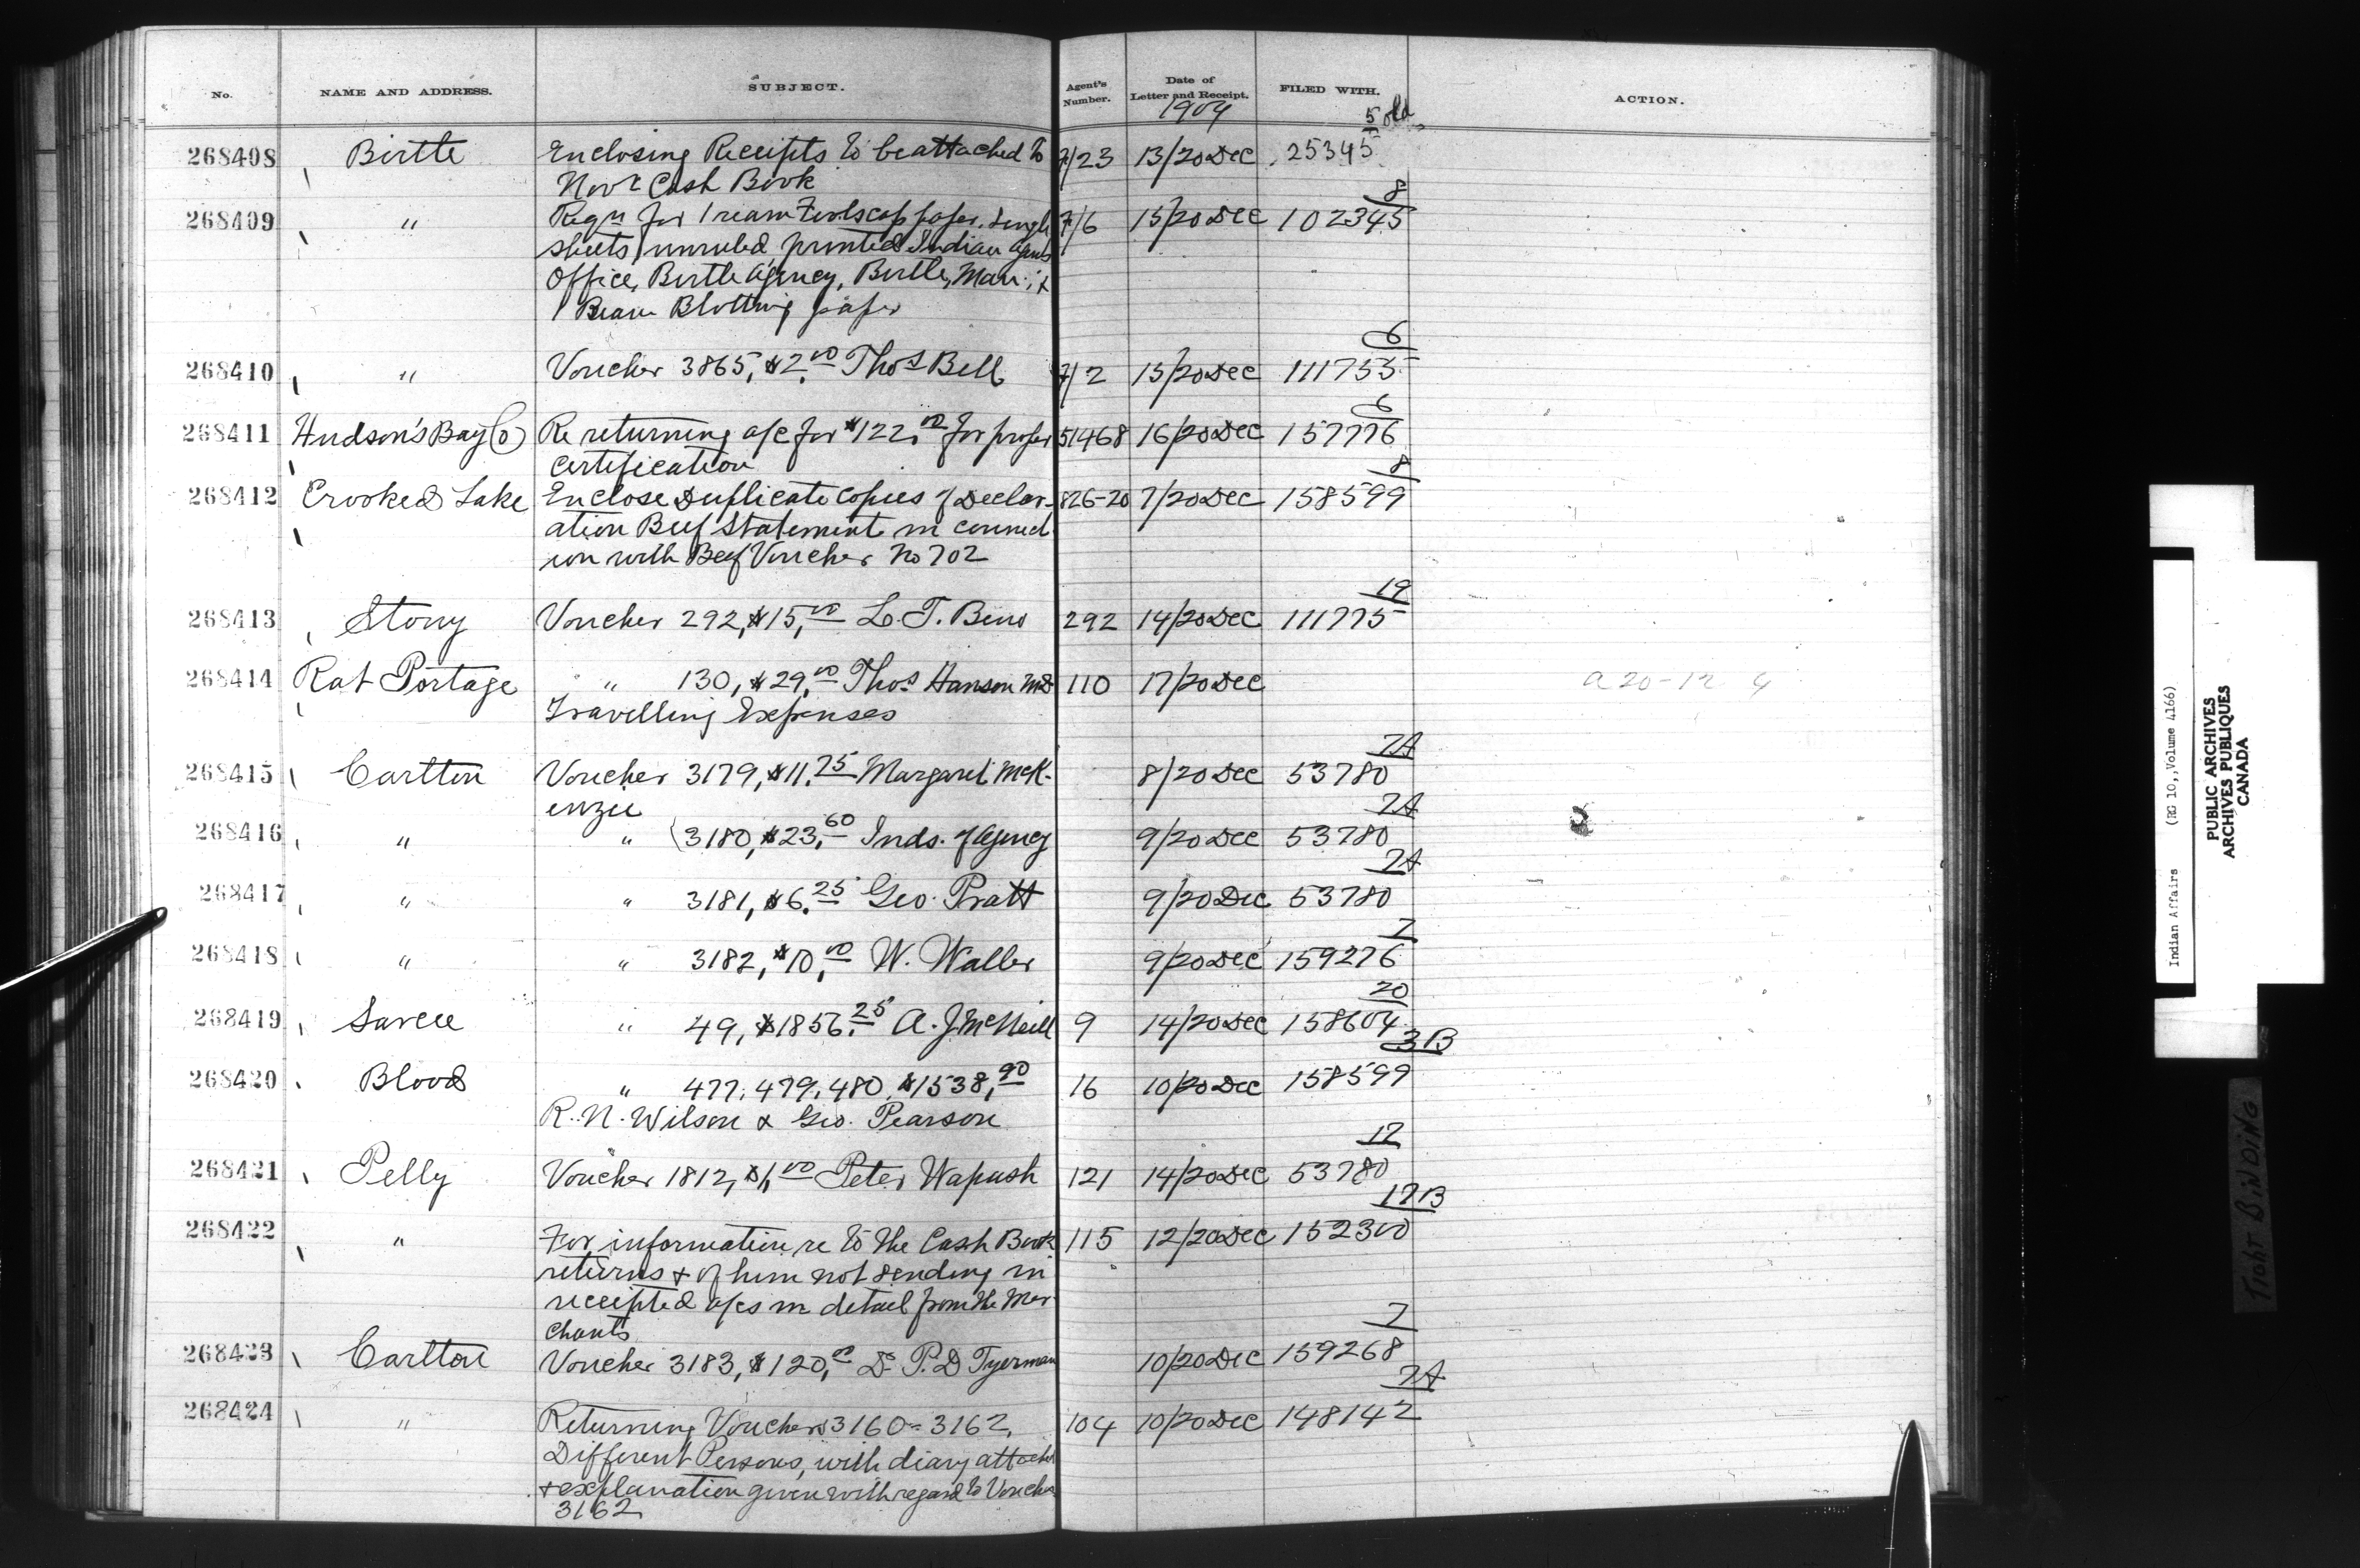 No. NAME AND ADDRESS. SUBJECT. Agent's Number. Date of Letter and Receipt. FILED WITH. ACTION.
1904
5 old
268408 Birtle Enclosing Receipts to be attached to 7/23 13/20 Dec 25345
Novr Cash Book
8
268409 " Reqn for 1 ream Foolscap paper, single 7/6 15/20 Dec 102345
sheets, unruled, printed Indian Agents
Office, Birtle Agency, Birtle, Man; &
1 Ream Blotting paper
6
268410 " Voucher 3865, $2.00 Thos Bell 7/2 15/20 Dec 111755
6
268411 Hudson's Bay Co Re returning a/c for $122.00 for proper 51468 16/20 Dec 157776
certification
8
268412 Crooked Lake Enclose Duplicate copies of Declar- 826-20 7/20 Dec 158599
ation Beef Statement in connect-
ion with Beef Voucher No 702
19
268413 Stony Voucher 292, $15.00 292 14/20 Dec 111775
268414 Rat Portage " 130, $29.00 Thos Hanson MD 110 17/20 Dec a 20-12 4
Travelling Expenses
7A
268415 Carlton Voucher 3179, $11.75 Margaret McK- 8/20 Dec 53780
enzie
7A
268416 " " 3180, $23.60 Inds. of Agency 9/20 Dec 53780
7A
268417 " " 3181, $6.25 Geo. Pratt 9/20 Dec 53780
7
268418 " " 3182, $10.00 W. Waller 9/20 Dec 159276
20
268419 Sarcee " 49, $1856.25 A. J McNeill 9 14/20 Dec 158604
3B
268420 Blood " 477, 479, 480, $1538.90 16 10/20 Dec 158599
R. N. Wilson & Geo. Pearson
17
268421 Pelly Voucher 1812, $1.00 Peter Wapash 121 14/20 Dec 53780
17B
268422 " For information re to the Cash Book 115 12/20 Dec 152300
returns & of him not sending in
receipted a/cs in detail from the Mer-
chants
7
268423 Carlton Voucher 3183, $120.00 Dr P. D Tyerman 10/20 Dec 159268
7A
268424 " Returning Vouchers 3160-3162, 104 10/20 Dec 148142
Different Persons, with diary attached
& explanation given with regard to Voucher
3162
Indian Affairs (RG 10, Volume 4166)
PUBLIC ARCHIVES
ARCHIVES PUBLIQUES
CANADA
TIGHT BINDING